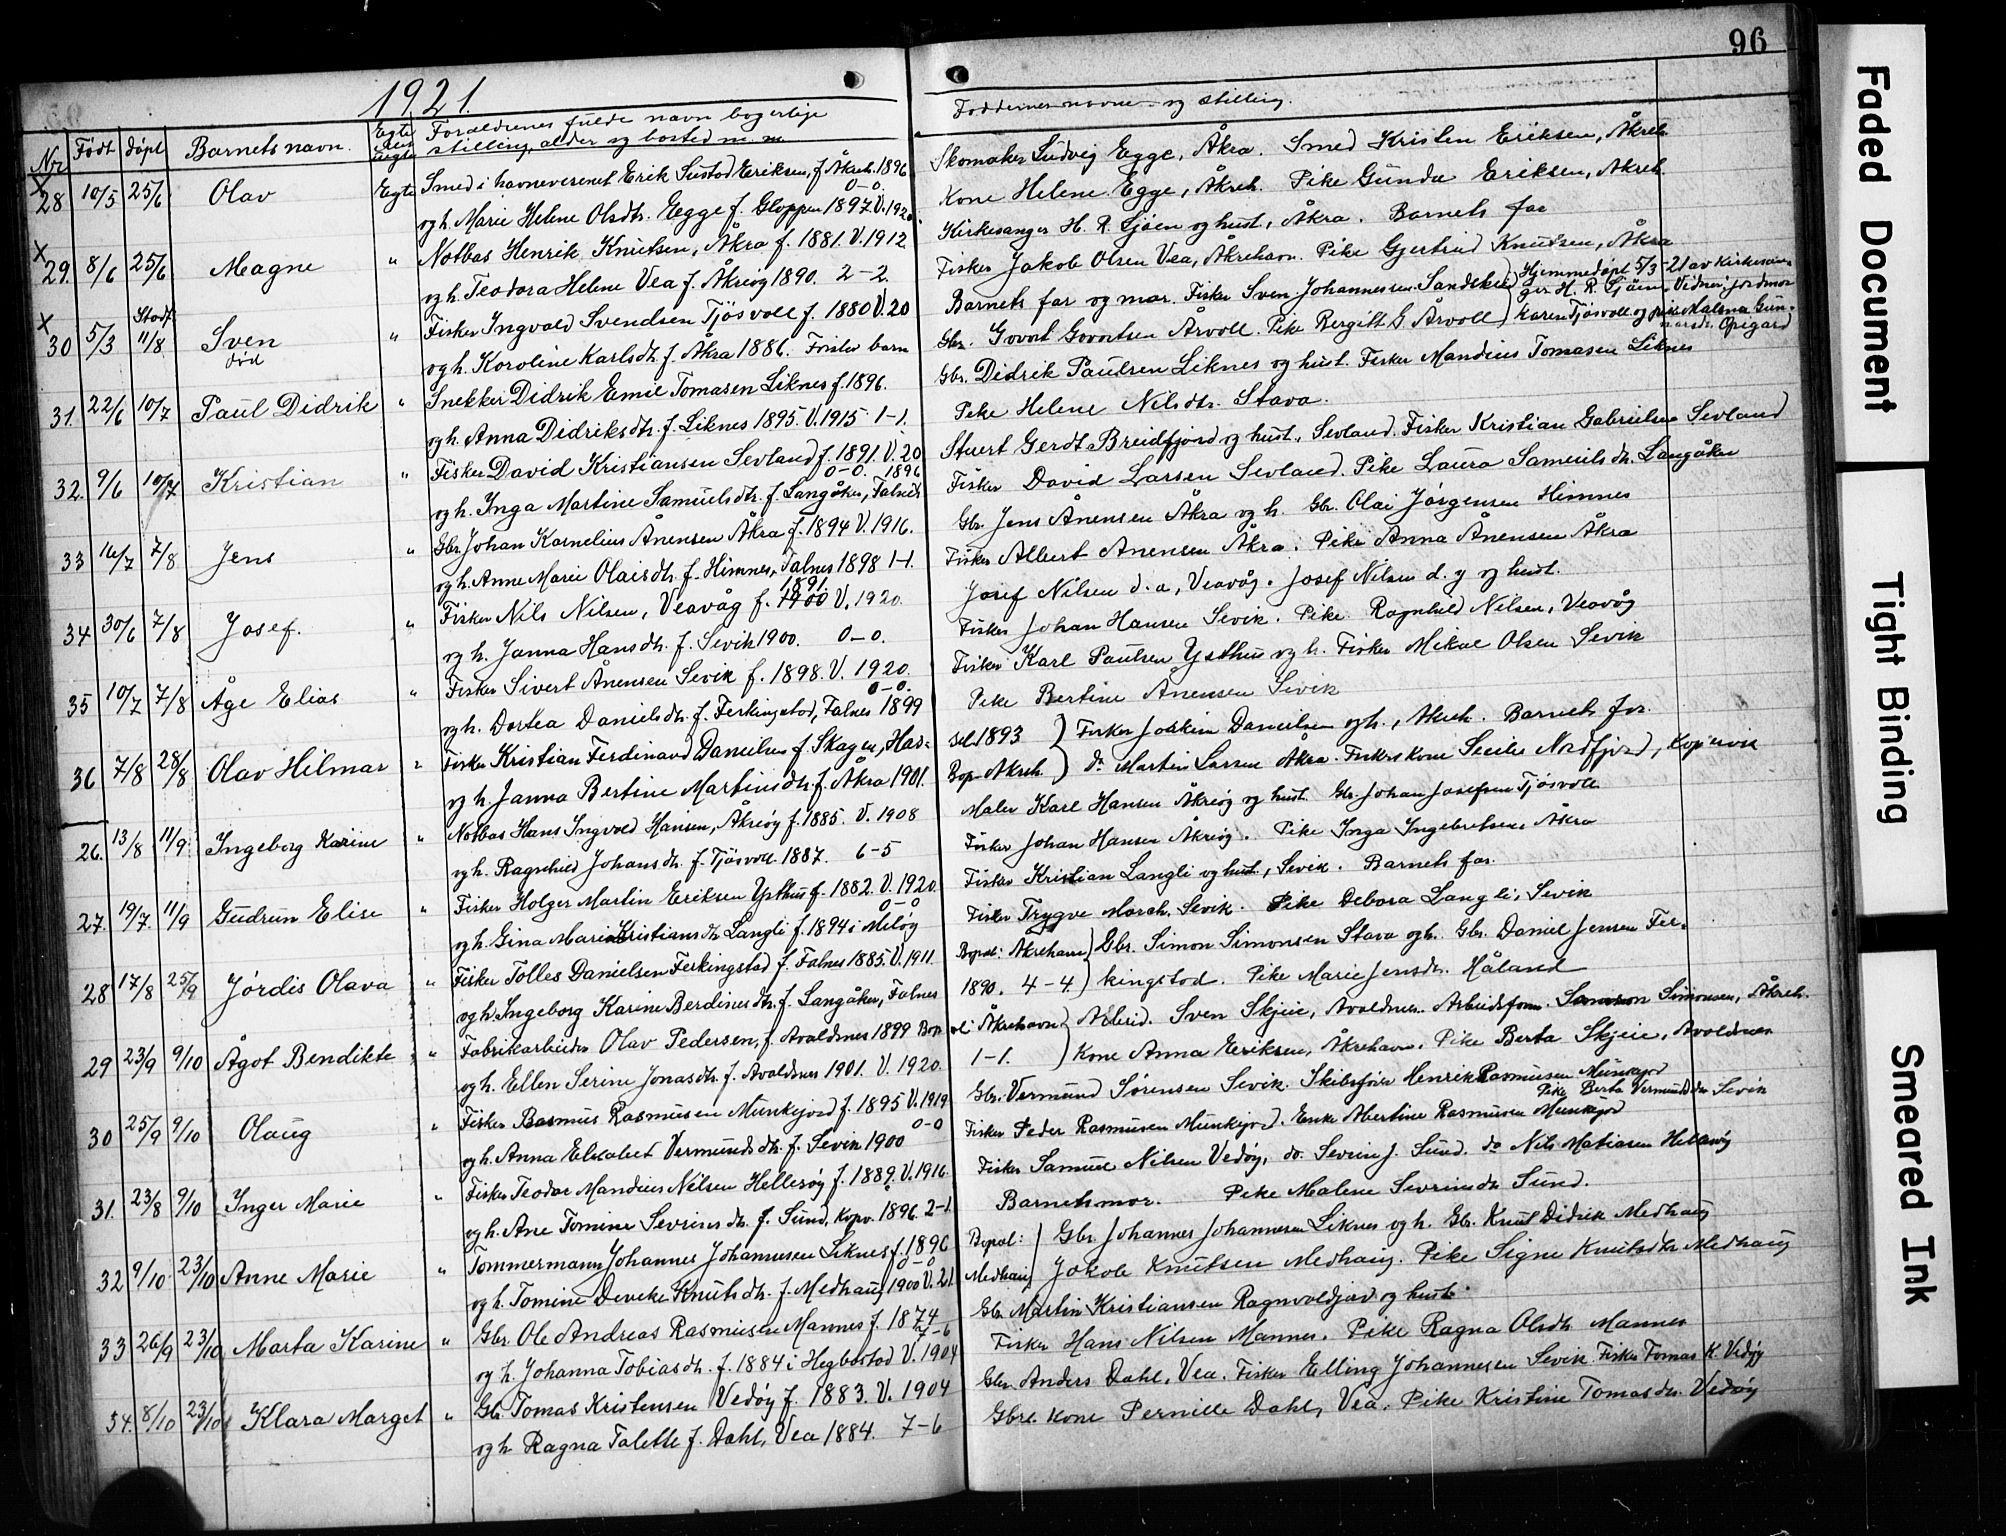 96
1921.
Nr. Født døpt Barnets navn. Egte eller uegte Forældrenes fulde navn bogerlige
stilling, alder og bosted m. m.
Faddernes navne og stilling.
x 28 10/5 25/6 Olav Egte Smed i havnevesenet Erik Eriksen, f. Åkreh. 1896
0-0.
og h. Marie Helene Olsdtr. Egge f. Gloppen 1897. V. 1920.
Skomaker Ludvig Egge, Åkra. Smed Kristen Eriksen, Åkreh.
Kone Helene Egge, Åkreh. Pike Gunda Eriksen, Åkreh.
x 29. 8/6 25/6 Magne " Notbas Henrik Knutsen, Åkra f. 1881. V. 1912
og h. Teodora Helene Vea f. Åkreøy 1890. 2-2.
Kirkesanger H. R. Sjøen og hust, Åkra. Barnets far
Fisker Jakob Olsen Vea, Åkrehavn. Pike Gjertrud Knutsen, Åkra
x 30 5/3 Stadf. 11/8 Sven " Fisker Ingvald Svendsen Tjøsvoll f. 1880 V. 20
død
og h. Karoline Karlsdtr. f. Åkra 1886. Første barn
Barnets far og mor. Fisker Sven Johannessen Sandeker } Hjemmedøpt 5/3-21 av kirkesan-
ger H. R. Sjøen, Vidner: jordmor
Gbr. Govert Govertsen Årvoll. Pike Bergitt G Årvoll } Karen Tjøsvoll og pike Malena Gun-
narsdtr. Opigard
31. 22/6 10/7 Paul Didrik " Snekker Didrik Emil Tomasen Liknes f. 1896.
og h. Anna Didriksdtr. f. Liknes 1895. V. 1915 1-1.
Gbr. Didrik Paulsen Liknes og hust. Fisker Mandius Tomasen Liknes
Pike Helene Nilsdtr. Stava.
32. 9/6 10/7 Kristian " Fisker David Kristiansen Sevland f. 1891. V. 20
0-0. 1896
og h. Inga Martine Samuelsdtr. f. Langåker, Falnes
Stuert Gerdt Breidfjord og hust., Sevland. Fisker Kristian Gabrielsen Sevland
Fisker David Larsen Sevland. Pike Laura Samuelsdtr. Langåker
33 16/7 7/8 Jens " Gbr. Johan Kornelius Ånensen Åkra f. 1894 V. 1916.
og h. Anne Marie Olaisdtr. f. Himnes, Falnes 1898 1-1.
Gbr. Jens Ånensen Åkra og h. Gbr. Olai Jørgensen Himnes
Fisker Albert Ånensen Åkra. Pike Anna Ånensen Åkra
1891
34 30/6 7/8 Josef. " Fisker Nils Nilsen, Veavåg f. 1900 V. 1920.
og h. Janna Hansdtr. f. Sevik 1900. 0-0.
Josef Nilsen d. æ, Veavåg. Josef Nilsen d. y og hust.
Fisker Johan Hansen Sevik. Pike Ragnhild Nilsen, Veavåg
35 10/7 7/8 Åge Elias " Fisker Sivert Ånensen Sevik f. 1898. V. 1920.
0-0.
og h. Dortea Danielsdtr. f. Ferkingstad, Falnes 1899
Fisker Karl Paulsen Ysthus og h. Fisker Mikal Olsen Sevik
Pike Bertine Ånensen Sevik
36 7/8 28/8 Olav Hilmar " Fisker Kristian Ferdinand Danielsen f. Skagen, Has-
og h. Janna Bertine Martinisdtr. f. Åkra 1901.
sel. 1893 } Fisker Joakim Danielsen og h., Åkreh. Barnets far.
Bop. Åkreh. } do. Martin Larsen Åkra. Fiskers kone Secilie Nordfjord, Kopervik
26. 13/8 11/9 Ingeborg Karine " Notbas Hans Ingvald Hansen, Åkreøy f. 1885. V. 1908
og h. Ragnhild Johansdtr. f. Tjøsvoll 1887. 6-5
Maler Karl Hansen Åkreøy og hust. Gbr. Johan Josefsen Tjøsvoll
Fisker Johan Hansen Åkreøy. Pike Inga Ingebretsen, Åkra
27. 19/7. 11/9 Gudrun Elise " Fisker Holger Martin Eriksen Ysthus f. 1882. V. 1920
0-0
og h. Gina Marie Kristiansdtr. Langli f. 1894 i Meløy
Fisker Kristian Langli og hust, Sevik. Barnets far.
Fisker Trygve March, Sevik. Pike Debora Langli, Sevik
28 17/8 25/9 Jørdis Olava " Fisker Tolles Danielsen Ferkingstad f. Falnes 1885. V. 1911.
og h. Ingeborg Karine Berdinesdtr. f. Langåker, Falnes
Bopæl: Åkrehavn } Gbr. Simon Simonsen Stava og h. Gbr. Daniel Jensen Fer-
1890. 4-4 } kingstad. Pike Marie Jensdtr. Håland
29 23/9 9/10 Ågot Bendikte " Fabrikarbeider Olav Pedersen, f. Avaldsnes 1899 Bop
og h. Ellen Serine Jonasdtr. f. Avaldsnes 1901. V. 1920.
æl: Åkrehavn } Arbeid. Sven Skjeie, Avaldsnes. Arbeidsform. Simonsen, Åkreh.
1-1. } Kone Anna Eriksen, Åkrehavn. Pike Berta Skjeie, Avaldsnes
30 25/9 9/10 Olaug " Fisker Rasmus Rasmussen Munkejord f. 1895 V. 1919
0-0
og h. Anna Elisabet Vermundsdtr. f. Sevik 1900
Gbr. Vermund Sørensen Sevik. Skibsfører Henrik Rasmussen Munkejord
Pike Berta Vermundsdtr. Sevik
Fisker Peder Rasmussen Munkejord. Enke Abertine Rasmussen Munkejord
31. 23/8 9/10 Inger Marie " Fisker Teodor Mandius Nilsen Hellesøy f. 1889. V. 1916
og h. Ane Tomine Sevrinsdtr. f. Sund, Kopv. 1896. 2-1.
Fisker Samuel Nilsen Vedøy, do. Sevrin J. Sund. do Nils Matiasen Hellesøy
Barnets mor. Pike Malene Sevrinsdtr Sund.
32 9/10 23/10 Anne Marie " Tømmermann Johannes Johannesen Liknes f. 1896
0-0
og h. Tomine Deveke Knutsdtr. f. Medhaug 1900 V. 21.
Bopæl: } Gbr Johannes Johannesen Liknes og h. Gbr. Knut Didrik Medhaug
Medhaug } Jakob Knutsen Medhaug. Pike Signe Knutsdtr Medhaug
33 26/9 23/10 Marta Karine " Gbr. Ole Andreas Rasmussen Mannes f. 1874
7-6
og h. Johanna Tobiasdtr. f. 1884 i Hegbostad V. 1904
Gbr. Martin Kristiansen Ragnvaldjord og hust.
Fisker Hans Nilsen Mannes. Pike Ragna Olsdtr Mannes
34. 8/10 23/10 Klara Marget " Gbr. Tomas Kristensen Vedøy f. 1883. V. 1904
og h Ragna Talette f. Dahl, Vea 1884. 7-6
Gbr. Anders Dahl, Vea. Fisker Elling Johannesen Sevik. Fisker Tomas K. Vedøy
Gbrs kone Pernille Dahl, Vea. Pike Kristine Tomasdtr Vedøy
Faded Document
Tight Binding
Smeared Ink